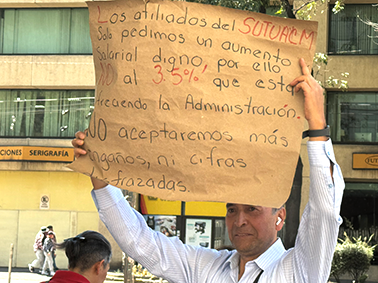 Los afiliados del SUTUACM
Solo pedimos un aumento
Salarial digno por ello
NO al 3.5% que esta
ofreciendo la Administración.
NO aceptaremos más
engaños, ni cifras
disfrazadas.
CIONES SERIGRAFÍA